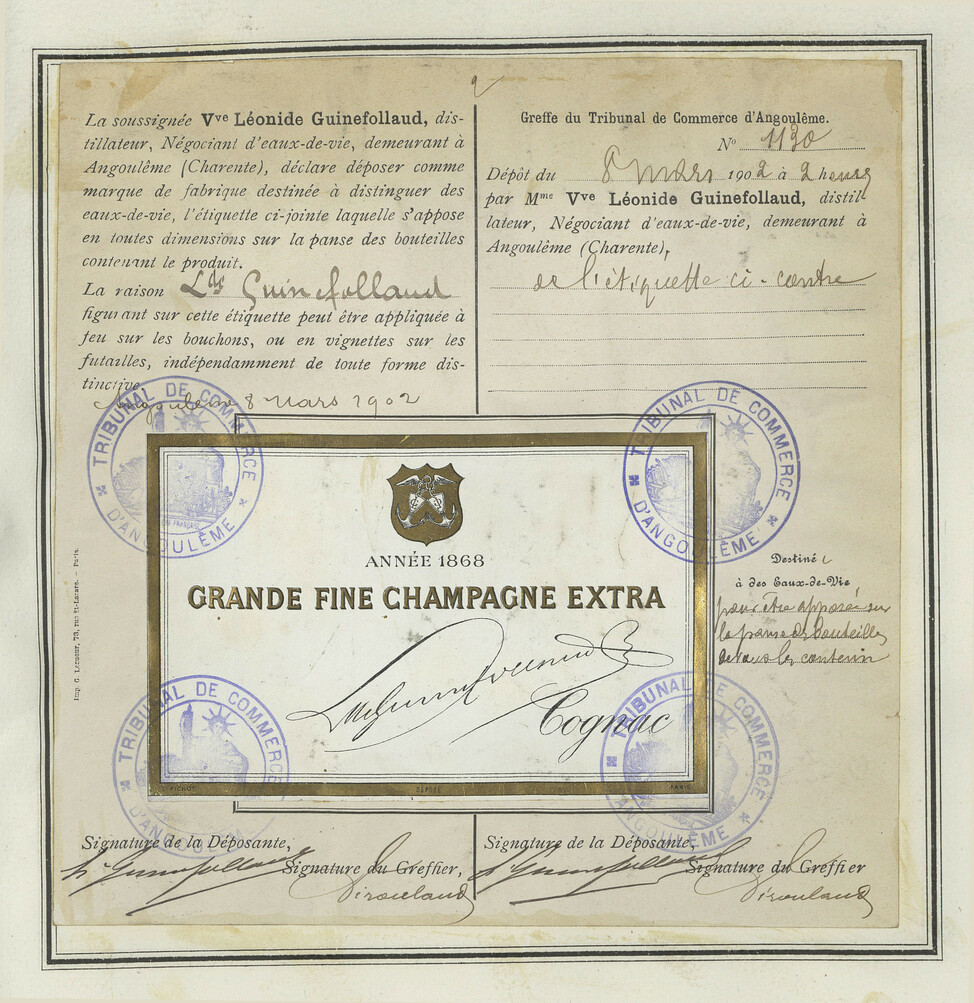 La soussignée Vve Léonide Guinefollaud, dis-
tillateur, Négociant d'eaux-de-vie, demeurant à
Angoulême (Charente), déclare déposer comme
marque de fabrique destinée à distinguer des
eaux-de-vie, l'étiquette ci-jointe laquelle s'appose
en toutes dimensions sur la panse des bouteilles
contenant le produit.
La raison Lde Guinefollaud
figurant sur cette étiquette peut être appliquée à
feu sur les bouchons, ou en vignettes sur les
futailles, indépendamment de toute forme dis-
tinctive.
Angoulême 8 mars 1902
Greffe du Tribunal de Commerce d'Angoulême.
No 1130
Dépôt du 8 mars 1902 à 2 heures
par Mme Vve Léonide Guinefollaud, distil-
lateur, Négociant d'eaux-de-vie, demeurant à
Angoulême (Charente),
de l'étiquette ci-contre
TRIBUNAL DE COMMERCE
D'ANGOULÊME
TRIBUNAL DE COMMERCE
D'ANGOULÊME
ANNÉE 1868
GRANDE FINE CHAMPAGNE EXTRA
Cognac
PICHOT
DÉPOSÉ
PARIS
Destiné
à des Eaux-de-Vie
pour être apposé sur
la panse des bouteilles
devant les contenir
Imp. G. Lesueur, 73, rue St-Lazare. — Paris.
TRIBUNAL DE COMMERCE
D'ANGOULÊME
TRIBUNAL DE COMMERCE
D'ANGOULÊME
Signature de la Déposante,
Signature du Greffier,
Signature de la Déposante,
Signature du Greffier